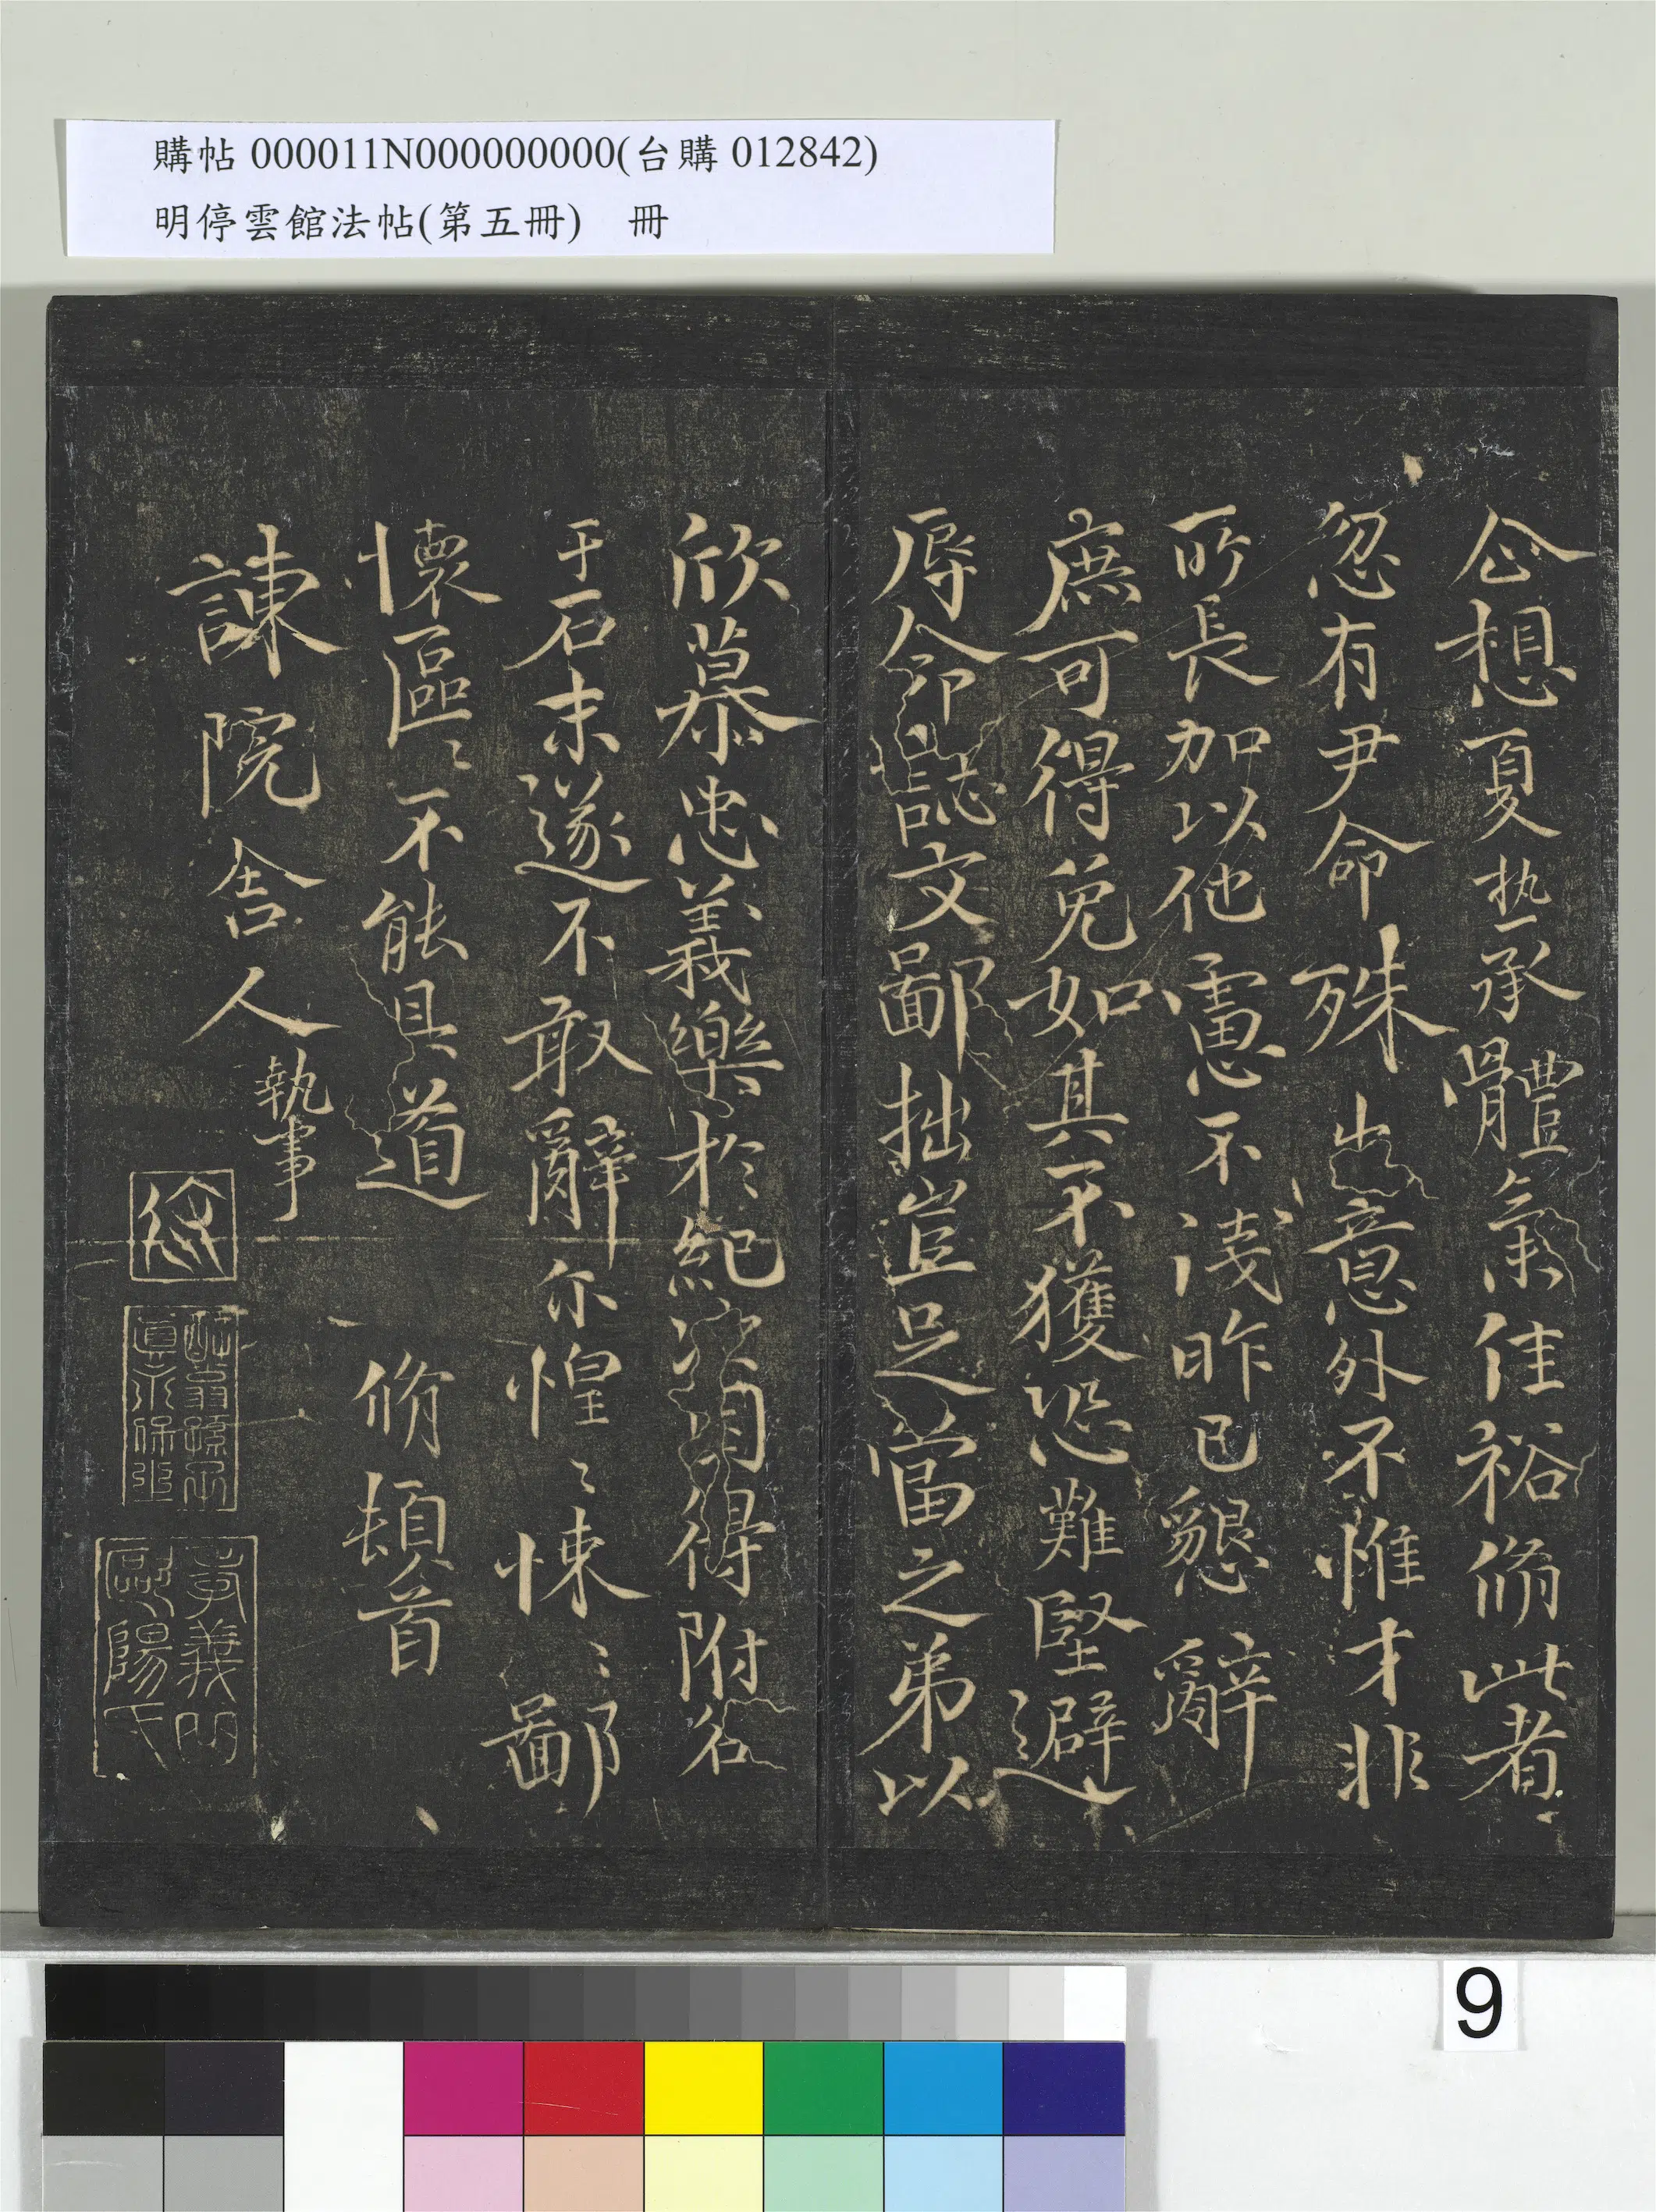 購帖 000011N000000000(台購 012842)
明停雲館法帖(第五冊) 冊
仚想夏热承體氣佳裕脩此者
忽有尹命殊出意外不惟才非
所長加以他慮不淺昨已懇辭
庶可得免如其不獲恐難堅避
辱命誌文鄙拙豈足當之弟以
欣慕忠義樂於紀次自得附名
于石末遂不敢辭尔惶〻悚〻鄙
懷區〻不能具道 脩頓首
諫院舍人執事
孝義門
歐陽氏
9